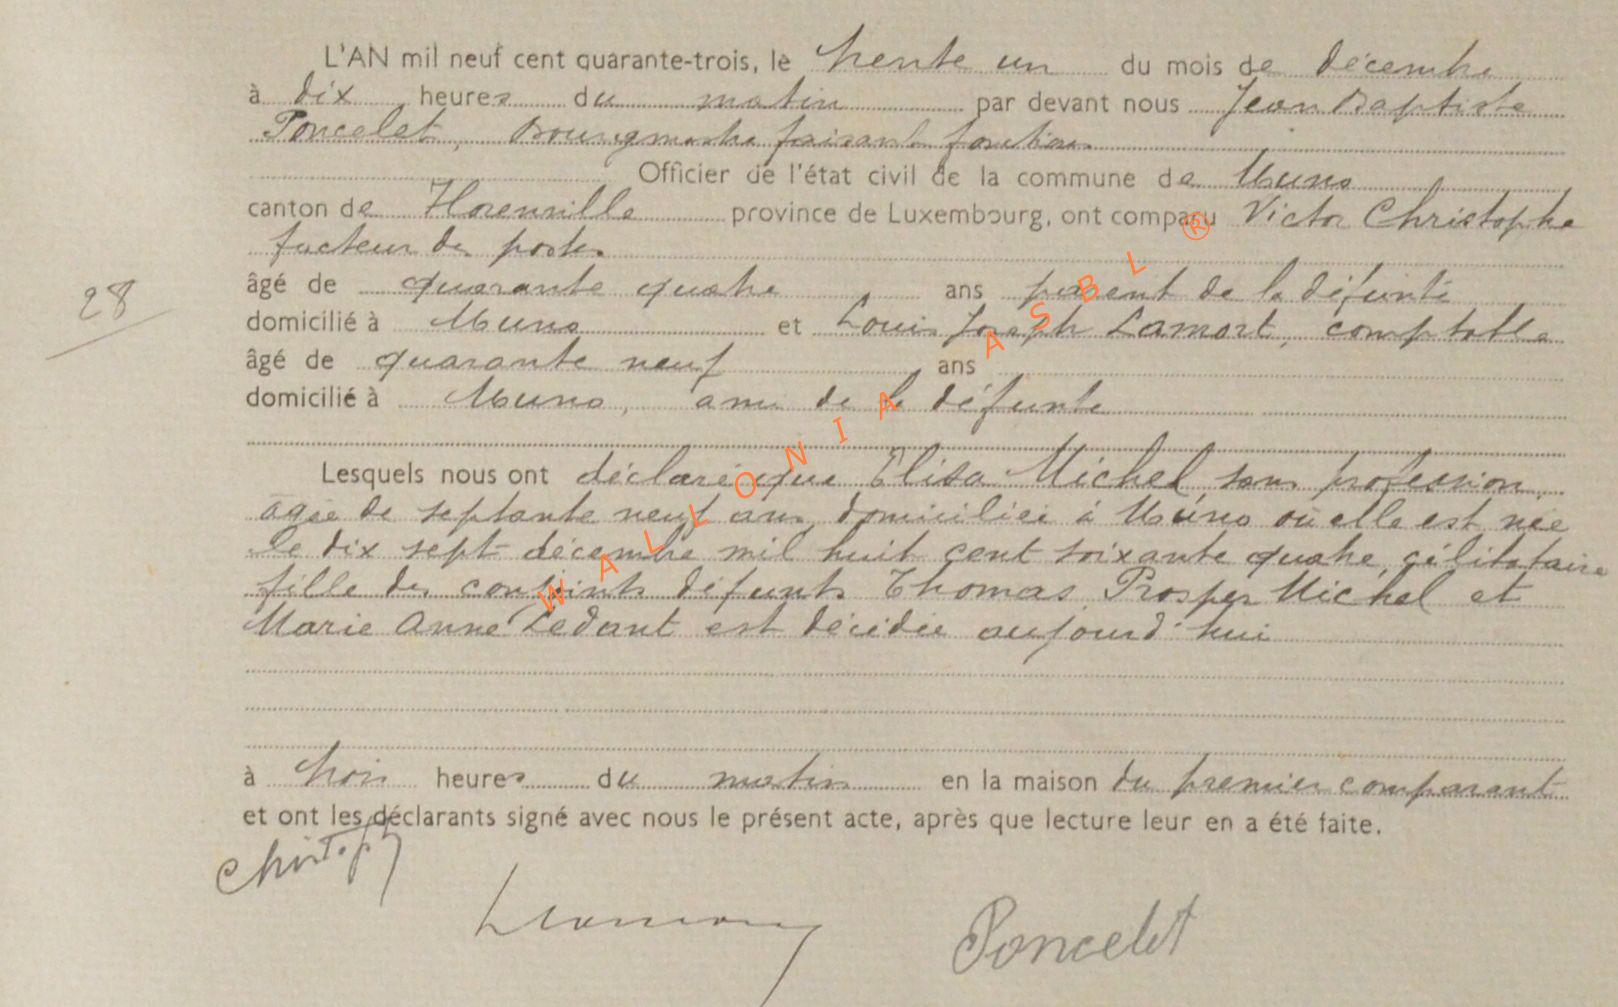 L'AN mil neuf cent quarante-trois, le trente un du mois de décembre
à dix heures du matin par devant nous Jean Baptiste
Poncelet, Bourgmestre faisant fonction
Officier de l'état civil de la commune de Muno
canton de Florenville province de Luxembourg, ont comparu Victor Christophe
facteur des postes
âgé de quarante quatre ans parent de la défunte
28
domicilié à Muno et Louis Joseph Lamort, comptable
âgé de quarante neuf ans
domicilié à Muno, ami de la défunte
Lesquels nous ont déclaré que Elisa Michel, sans profession,
âgée de septante neuf ans, domiciliée à Muno où elle est née
le dix sept décembre mil huit cent soixante quatre, célibataire
fille des conjoints défunts Thomas Prosper Michel et
Marie Anne Ledant est décédée aujourd'hui
à trois heures du matin en la maison du premier comparant
et ont les déclarants signé avec nous le présent acte, après que lecture leur en a été faite.
Christophe
Poncelet
WALLONIA ASBL ®